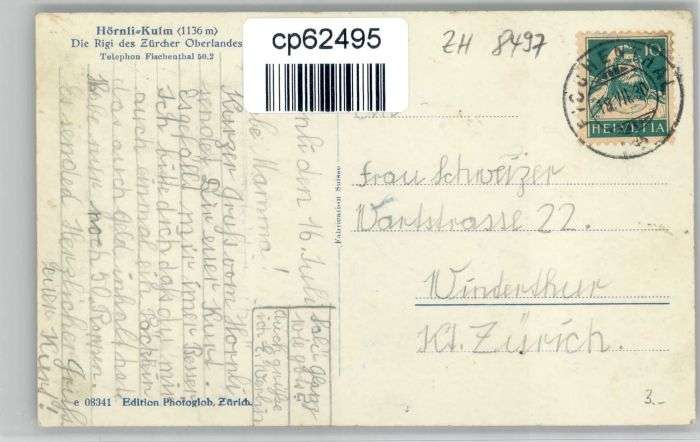 Hörnli-Kulm (1136 m)
Die Rigi des Zürcher Oberlandes
Telephon Fischenthal 50.2
cp62495
ZH 8497
10
HELVETIA
Frau Schweizer
Wartstrasse 22.
Winderthur
Kt. Zürich.
3.-
Fabrication Suisse
den 16. Juli
Mamma!
Kurzer Gruss vom Hörnli
sendet Dir euer Kurt.
Es gefällt mir imer besser
Ich bitte dich das du mir
auch einmal ein Päcklein
das auch geld inhalt hat
Habe nur noch 50 Rappen.
Es sendet Herzlichen Grüsse
euer Kurt!
e 08341 Edition Photoglob, Zürich.